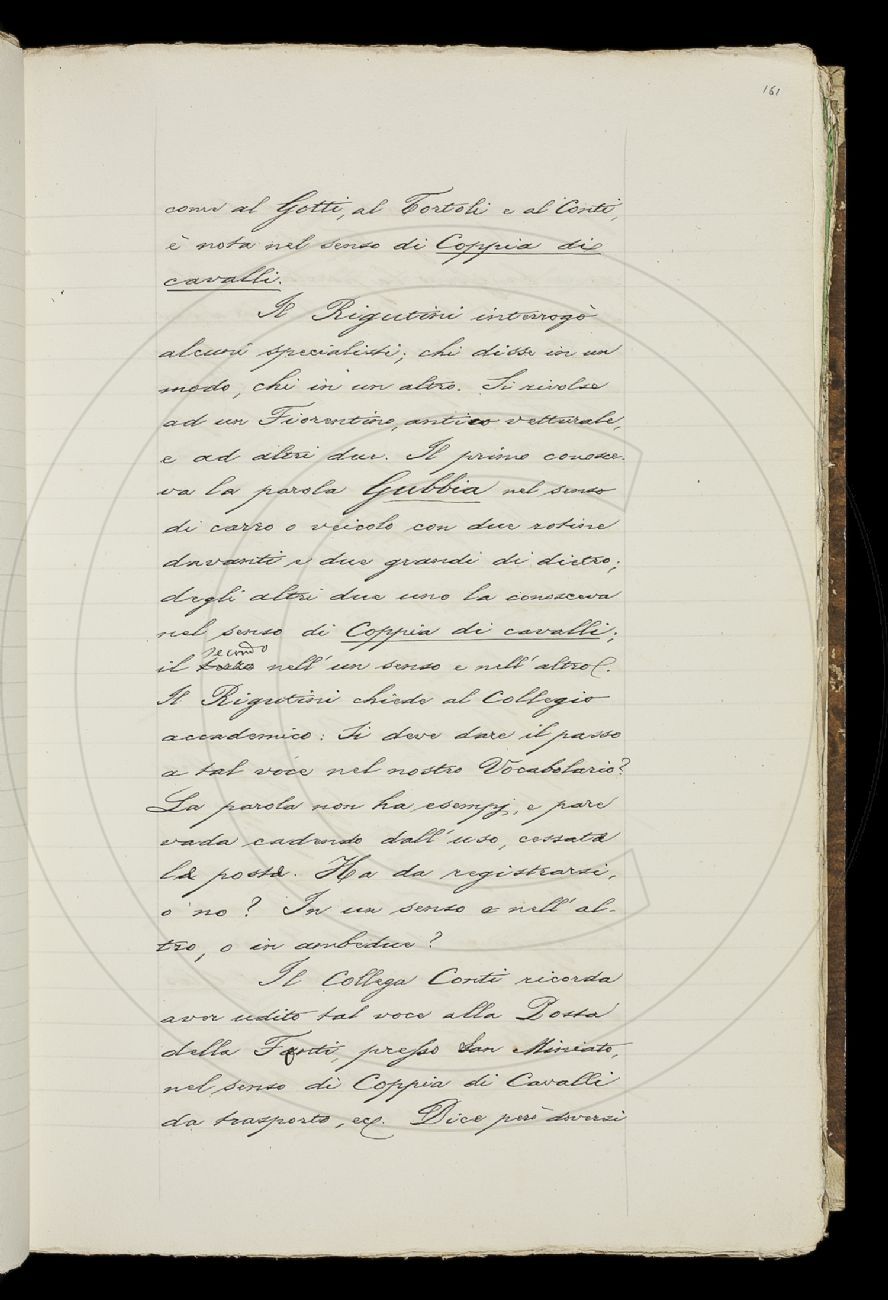 161
come al Gotti, al Tortoli e al Conti,
è nota nel senso di Coppia di
cavalli.
Il Rigutini interrogò
alcuni specialisti; chi disse in un
modo, chi in un altro. Si rivolse
ad un Fiorentino, antico vetturale,
e ad altri due. Il primo conosce-
va la parola Gubbia nel senso
di carro o veicolo con due rotine
davanti e due grandi di dietro;
degli altri due uno la conosceva
nel senso di Coppia di cavalli;
secondo
il terzo nell'un senso e nell'altro.
Il Rigutini chiede al Collegio
accademico: Si deve dare il passo
a tal voce nel nostro Vocabolario?
La parola non ha esempj, e pare
vada cadendo dall'uso, cessata
la posta. Ha da registrarsi,
o no? In un senso o nell'al-
tro, o in ambedue?
Il Collega Conti ricorda
aver udito tal voce alla Posta
della Fonti, presso San Miniato,
nel senso di Coppia di Cavalli
da trasporto, ec. Dice però doversi